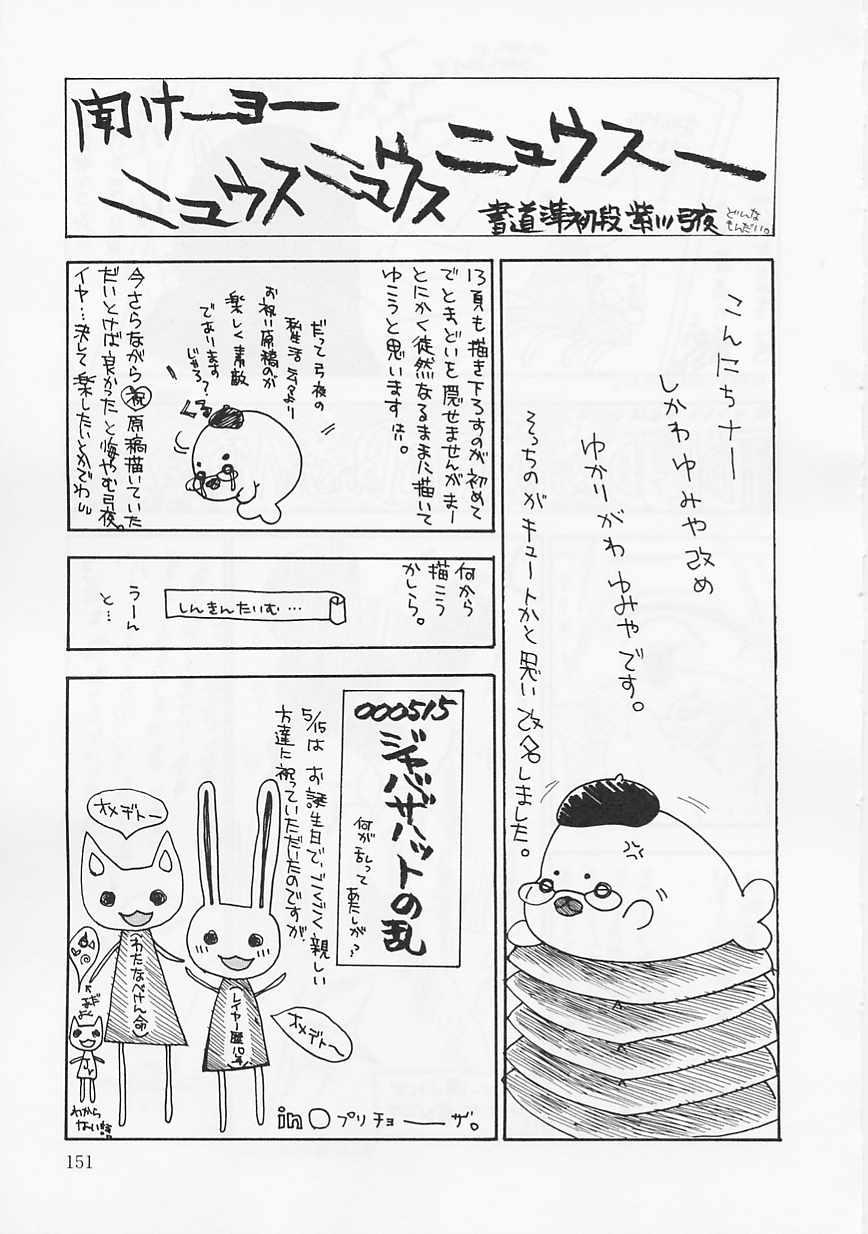 聞けーヨー
ニュウスニュウスニュウスー
書道準初段 紫川弓夜
どんな
もんだい。
こんにちナー
しかわゆみや改め
ゆかりがわ ゆみやです。
そっちのがキュートかと思い改名しました。
13頁も描き下ろすのが初めて
でとまどいを隠せませんがまー
とにかく徒然なるままに描いて
ゆこうと思います
だって弓夜の
私生活
より
お祝い原稿のが
楽しく素敵
であります
じゃろ?
今さらながら㊗原稿描いていた
だいとけば良かったと悔やむ弓夜。
イヤ…決して楽したいとかでわ
何から
描こう
かしら。
しんきんたいむ…
うーん
と…
000515
ジャバザハットの乱
何が乱って
あたしが?
5/15は お誕生日で、ごくごく親しい
方達に祝っていただいたのですが、
オメデトー
わたなべけん(命)
レイヤー歴10年
オメデトー
わから
ない
in〇プリチョーーザ。
151